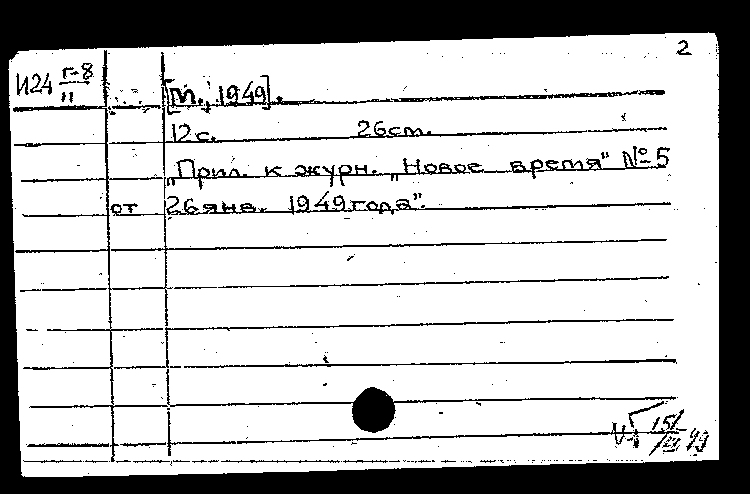 2
И24 г-8
11
[М., 1949].
12с. 26cm.
„Прил. к журн. „Новое время" №5
от 26 янв. 1949 года".